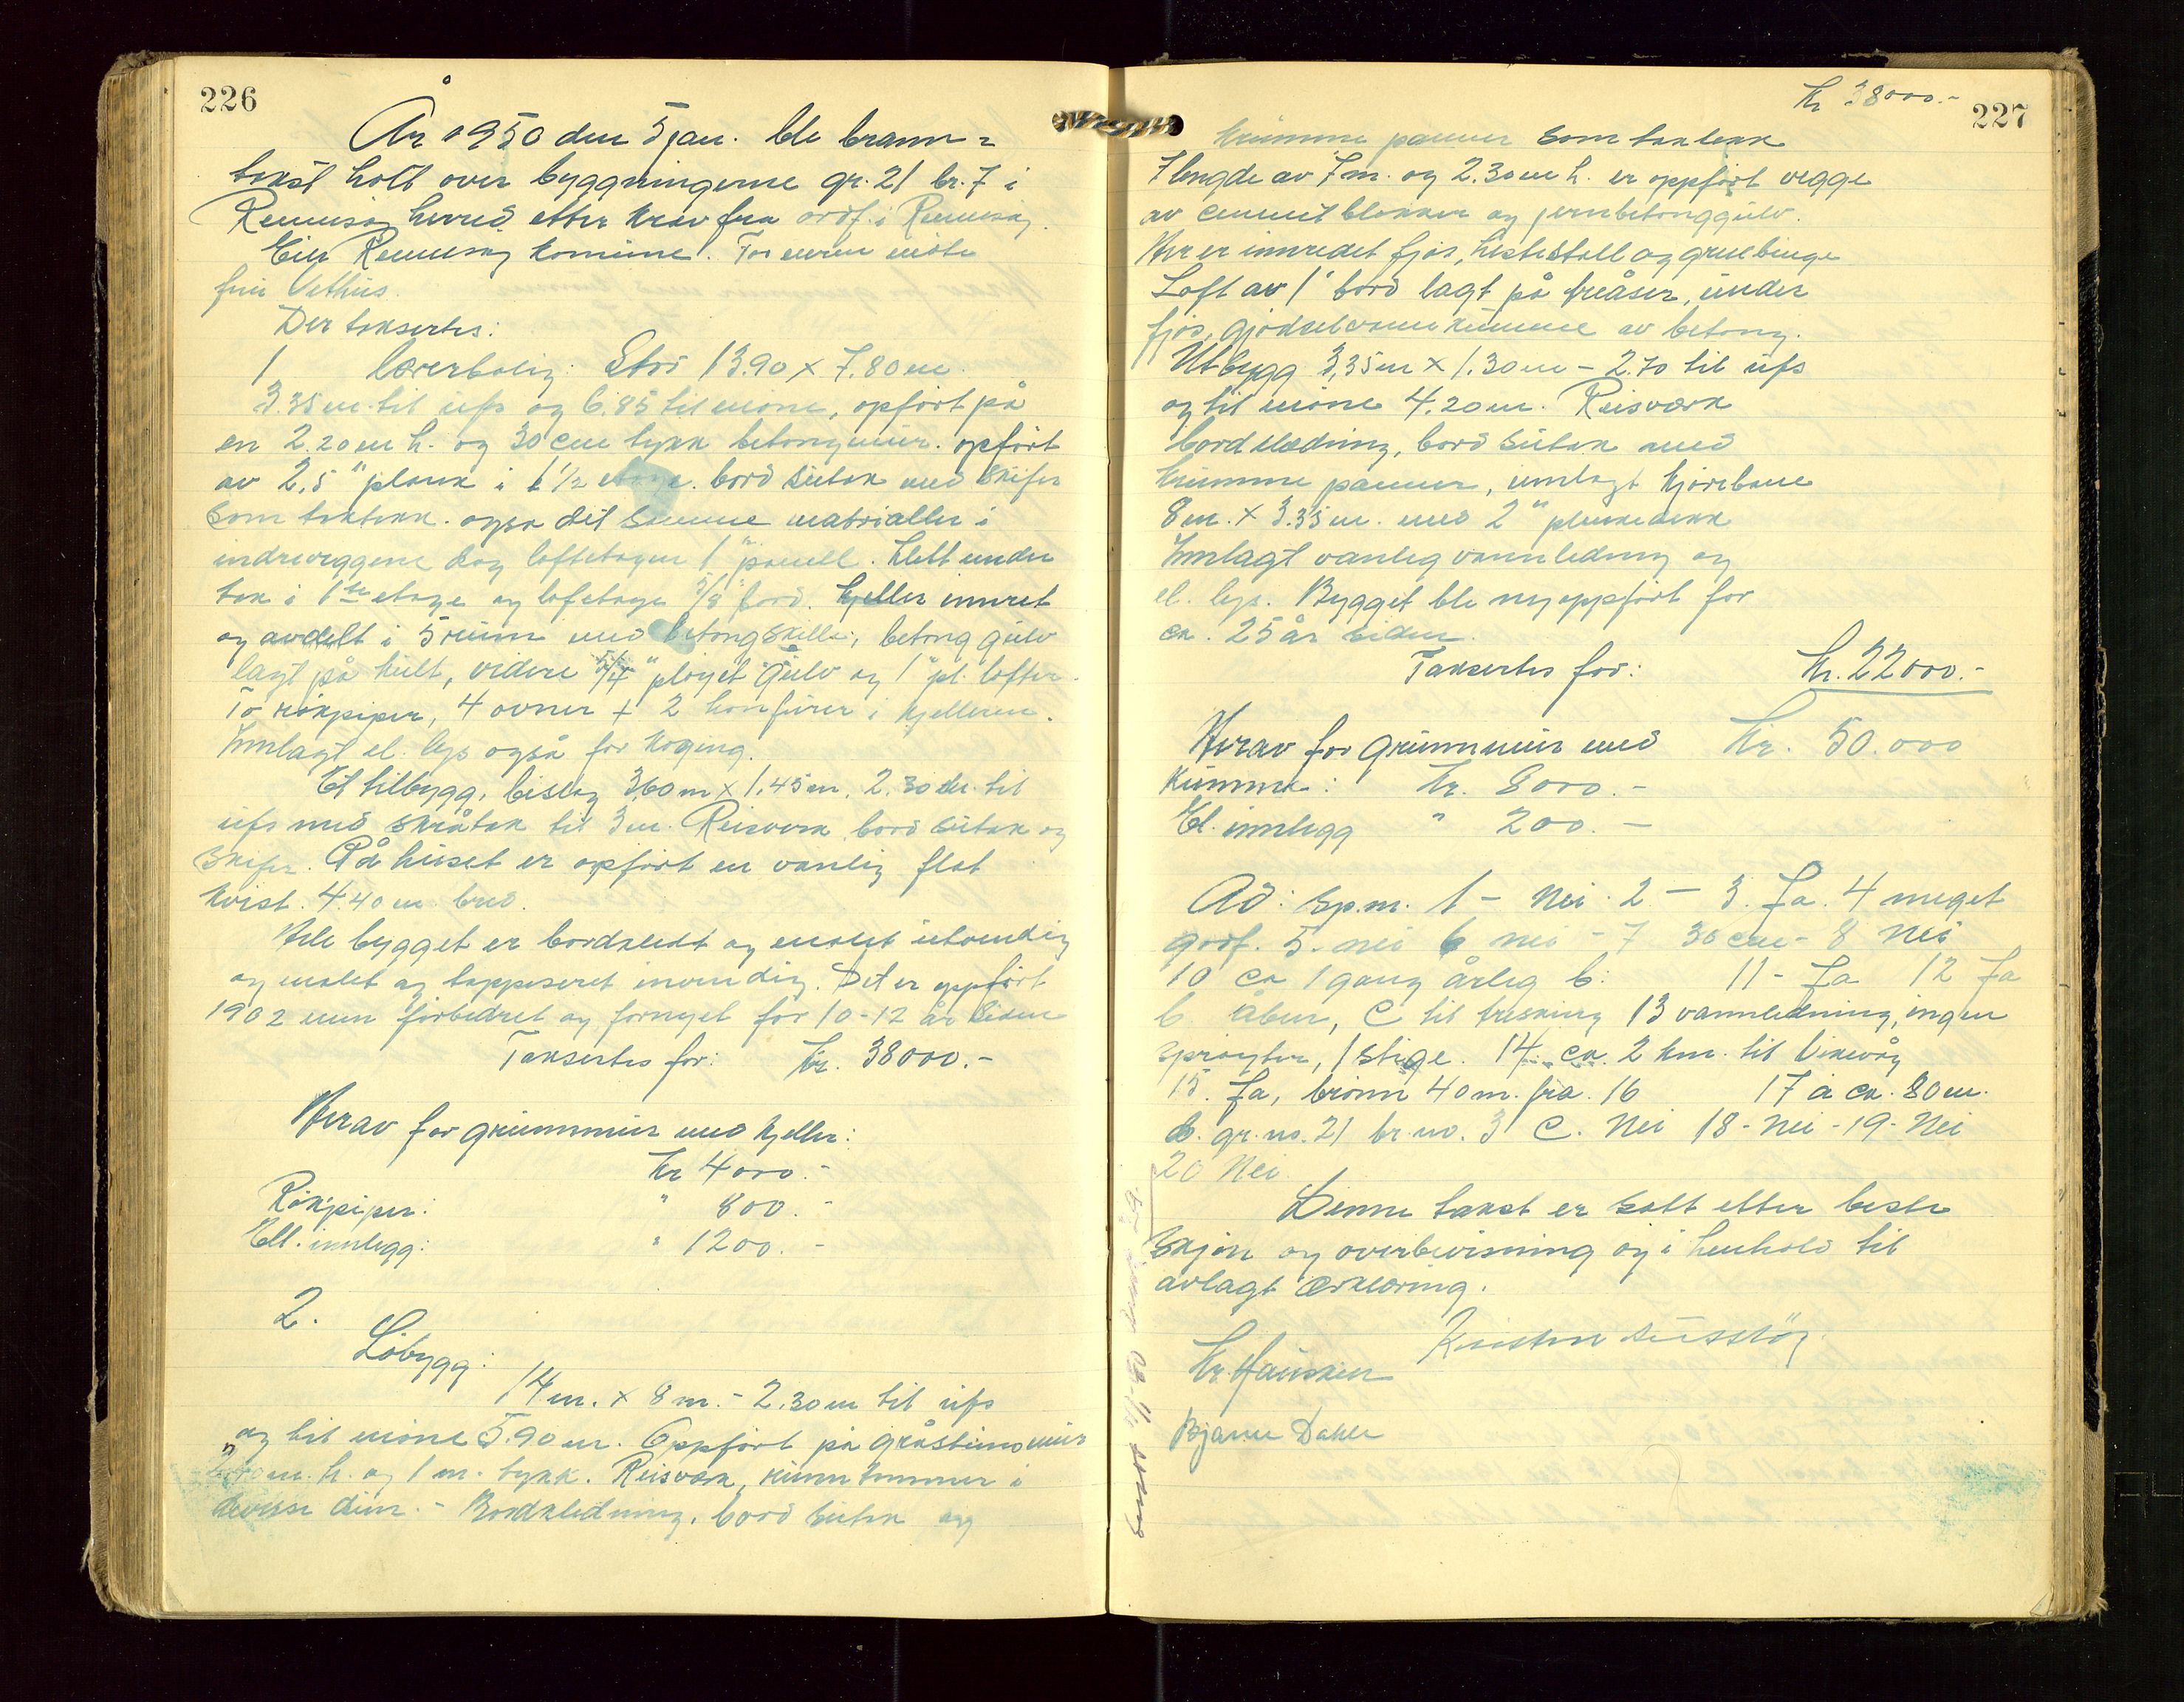 226
År 1950 den 5 jan. ble brann=
takst holt over byggningerne gr. 21 br. 7 i
Rennesøy herred etter krav fra ordf. i Rennesøy.
Eier Rennesøy komune. For eieren møte
frü Vethüs.
Der taksertes:
1 Lærerbolig: Stør 13.90 x 7.80 m.
3.35 m. til ufs og 6.85 til møne, opført på
en 2.20 m h. og 30 cm tykk betongmür. opført
av 2,5" plank i 1 1/2 etage. bord sütak med skifer
som taktekk. også det samme matrialler i
indreveggene dog loftetagen 1" panell. Slett under
tak i 1ste etage og lofetage 5/8 bord. Kjeller innret
og avdelt i 5 rüm med betongskille, betong gülv
lagt på kült, videre 5/4" pløyet gülv og 1" pl. lofter.
To røkpiper, 4 ovner + 2 komfürer i kjelleren.
Innlagt el. lys også for koging.
Et tilbygg, bislag 3,60 m x 1,45 m, 2.30 m. til
ufs med skråtak til 3 m. Reisverk bord sütak og
skifer. På hüset er opført en vanlig flat
kvist. 4.40 m bred.
Hele bygget er bordkledt og malet ütvendig
og malet og tappeseret invendig. Det er oppført
1902 men forbedret og fornyet for 10-12 år siden
Taksertes for: kr. 38000.-
Herav for grünnmür med kjeller:
kr 4000.-
Røkpiper: " 800.-
Ell. innlegg: " 1200.-
2.
Løbygg:
14 m. x 8 m. - 2.30 m til ufs
og til møne 5.90 m. Oppført på gråstensmür
m. h. og 1 m. tykk. Reisverk, rünn tømmer i
devisse dim. - Bordkledning, bord sütak og
227
Kr 38000.-
krümme panner som taktekk
I lengde av 7 m. og 2.30 m h. er oppført vegge
av cement blokker og jernbetonggülv.
Her er innredet fjøs, hestestall og grisebinge
Loft av 1" bord lagt på treåser, ünder
fjøs, gjødselvannkümme av betong.
Utbygg 3,35 m x 1.30 m - 2.70 til ufs
og til møne 4.20 m. Reisverk
bordklædning, bord sütak med
krümme panner, innlagt kjørebane
8 m. x 3.35 m. med 2" plankedekk
Innlagt vanlig vannledning og
el. lys. Bygget ble ny oppført for
ca. 25 år siden.
Taksertes for: kr. 22000.-
Herav for grünnmür med Kr. 50.000
kümme: kr. 8000.-
El. innlegg " 200.-
Ad: Sp.m. 1 - Nei . 2 - 3. Ja. 4 meget
godt. 5. nei 6 nei - 7 30 cm - 8 Nei
10 ca 1 gang årlig b: 11 - Ja 12 Ja
b. åben, C til tresking 13 vannledning, ingen
sprøyter, 1 stige. 14. ca. 2 km. til Vikevåg
15. Ja, brønn 40 m. fra. 16 17 a ca. 80 m.
b. gr. no. 21 br. no. 3 C. Nei 18 - Nei - 19 - Nei
20 Nei
Denne takst er satt etter beste
skjøn og overbevisning og i henhold til
avlagt erklæring.
Kr. Haüsken
Bjarne Dahle